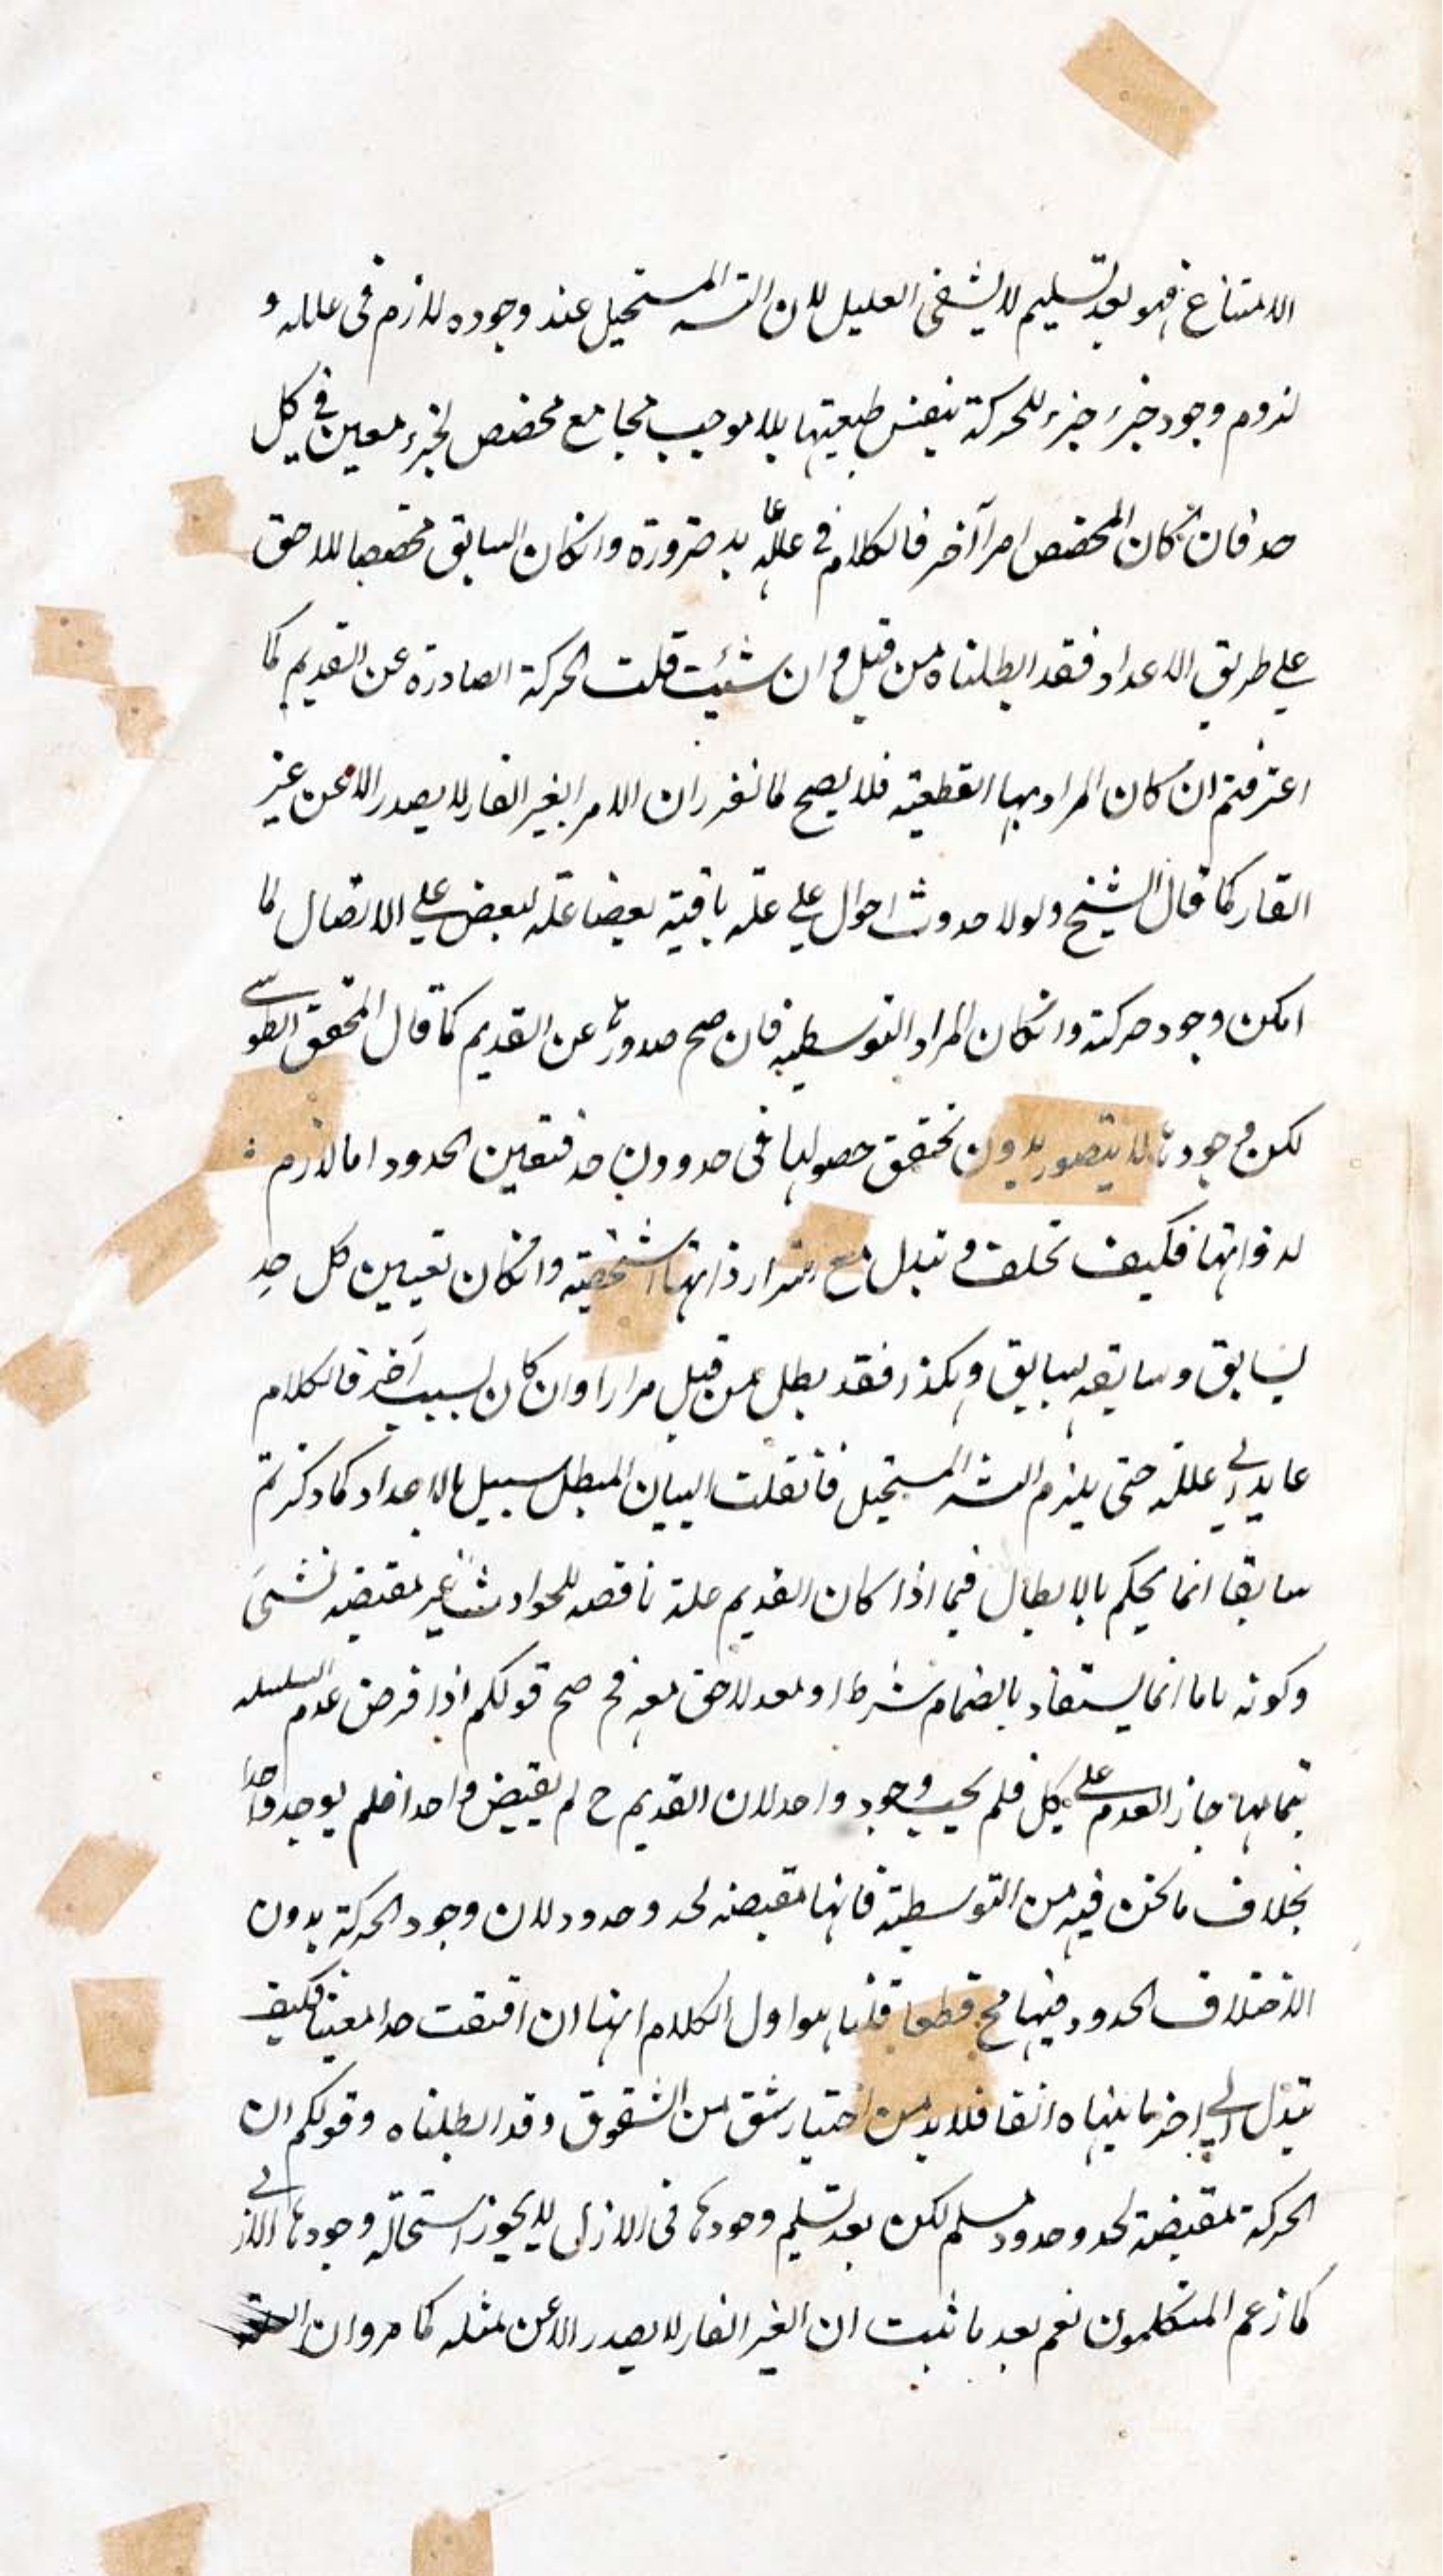 الامتناع فهو بعد تسليم لا يشفى العليل لان التسـ المستحيل عند وجوده لازم فى علله و
لزوم وجود جزء جزء للحركة بنفس طبعيتها بلا موجب مجامع مخصص لجزء معين في كل
حد فان كان المخصص امرا آخر فالكلام في علله عايد ضرورة وانكان السابق مخصصا للاحق
على طريق الاعداد فقد ابطلناه من قبل وان شئيت قلت الحركة الصادرة عن القديم كما
اعترفتم ان كان المراد بها القطعية فلا يصح لما تقرر ان الامر الغير القار لا يصدر الا عن غير
القار كما قال الشيخ ولولا حدوث احوال على علة باقية بعضا علة لبعض على الاتصال لما
امكن وجود حركة وانكان المراد التوسطية فان صح صدورها عن القديم كما قال المحقق الطوسى
لكن وجودها لا يتصور بدون تحقق حصولها فى حد دون حد فتعين الحدود اما لازم
لذواتها فكيف تخلف وتبدل مع استمرار ذاتها الشخصية وانكان تعيين كل حد
بسابق وسابقه بسابق وهكذا فقد بطل من قبل مرارا وان كان بسبب آخر فالكلام
عايد الى علله حتى يلزم التسـ المستحيل فان قلت البيان المبطل سبيل الاعداد كما ذكرتم
سابقا انما يحكم بالابطال فيما اذا كان القديم علة ناقصه للحوادث غير مقتضيه لشىء
وكونه تاما انما يستفاد بانضمام شرط او معد لاحق معه فح صح قولكم اذا فرض عدم السلسله
بتمامها جاز العدم على كل فلم يجب وجود واحد لان القديم ح لم يقتض واحدا فلم يوجد واحدا
بخلاف ما نحن فيه من التوسطية فانها مقتضيه لحد وحدود لان وجود الحركة بدون
الاختلاف الحدود فيها مح قطعا قلنا هوا اول الكلام انها ان اقتضت حدا معينا فكيف
تبدل الى اخر ما بيناه آنفا فلا بد من اختيار شق من الشقوق وقد ابطلناه وقولكم ان
الحركة مقتضية لحد وحدود مسلم لكن بعد تسليم وجودها فى الازل لا يجوز استحالة وجودها فى الاز
كما زعم المتكلمون نعم بعد ما ثبت ان الغير القار لا يصدر الا عن مثله كما مر وان